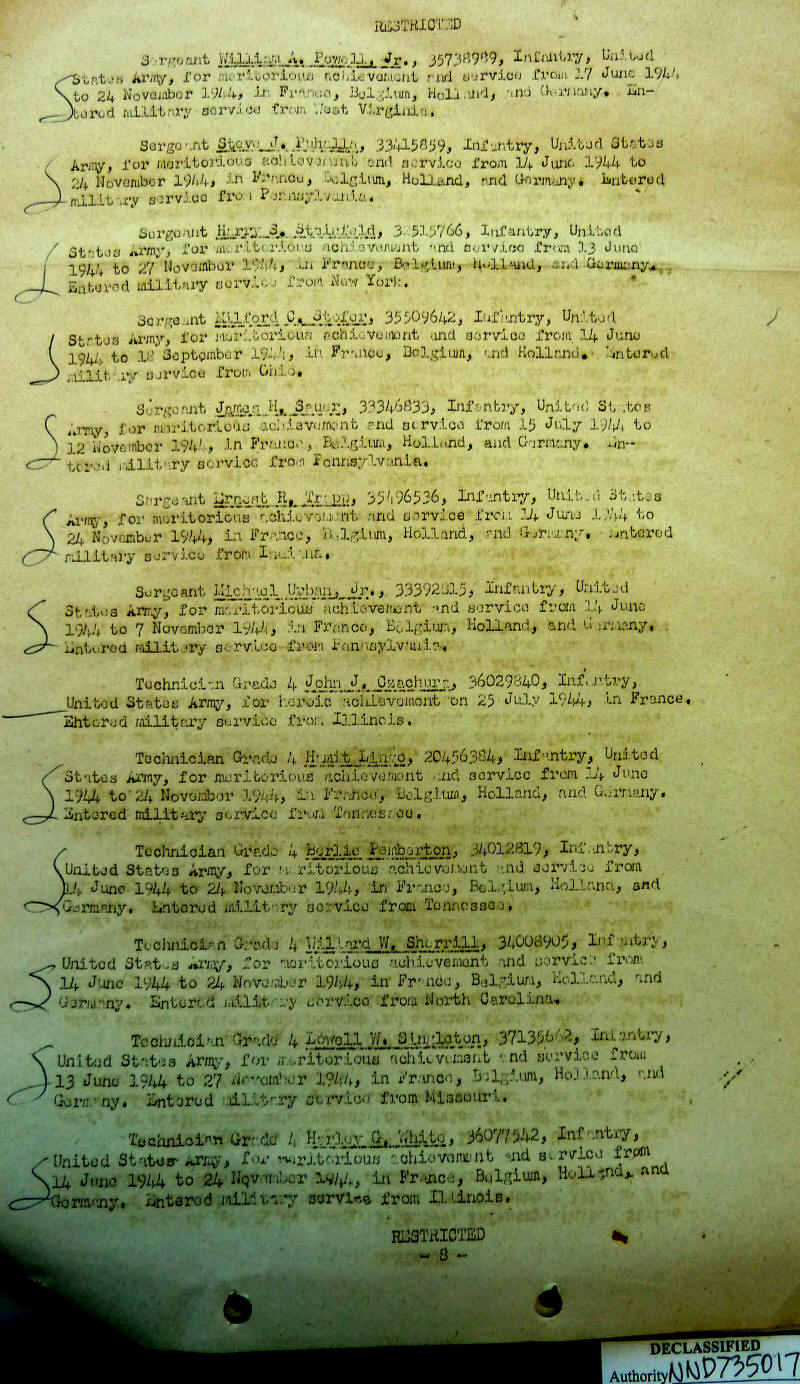 RESTRICTED
Sergeant William A. Powell, Jr., 35738989, Infantry, United
States Army, for meritorious achievement and service from 17 June 1944
to 24 November 1944, in France, Belgium, Holland, and Germany. En-
tered military service from West Virginia.
Sergeant Steve J. 33415859, Infantry, United States
Army, for meritorious achievement and service from 14 June 1944 to
24 November 1944, in France, Belgium, Holland, and Germany. Entered
military service from Pennsylvania.
Sergeant Harry S. Infantry, United
States Army, for meritorious achievement and service from 13 June
1944 to 27 November 1944, in France, Belgium, Holland, and Germany.
Entered military service from New York.
Sergeant Milford C. Stofer, 35509642, Infantry, United
States Army, for meritorious achievement and service from 14 June
1944 to 18 September 1944, in France, Belgium, and Holland. Entered
military service from Ohio.
Sergeant James H. Sauer, 33346833, Infantry, United States
Army, for meritorious achievement and service from 15 July 1944 to
12 November 1944, in France, Belgium, Holland, and Germany. En-
tered military service from Pennsylvania.
Sergeant Ernest R. 35496536, Infantry, United States
Army, for meritorious achievement and service from 14 June 1944 to
24 November 1944, in France, Belgium, Holland, and Germany. Entered
military service from Indiana.
Sergeant Michael Urban, Jr., 33392815, Infantry, United
States Army, for meritorious achievement and service from 14 June
1944 to 7 November 1944, in France, Belgium, Holland, and Germany.
Entered military service from Pennsylvania.
Technician Grade 4 John J. Czachura, 36029840, Infantry,
United States Army, for heroic achievement on 25 July 1944, in France.
Entered military service from Illinois.
Technician Grade 4 Lingo, 20456384, Infantry, United
States Army, for meritorious achievement and service from 14 June
1944 to 24 November 1944, in France, Belgium, Holland, and Germany.
Entered military service from Tennessee.
Technician Grade 4 Berlie Pemberton, 34012819, Infantry,
United States Army, for meritorious achievement and service from
14 June 1944 to 24 November 1944, in France, Belgium, Holland, and
Germany. Entered military service from Tennessee.
Technician Grade 4 Willard W. Sherrill, 34008905, Infantry,
United States Army, for meritorious achievement and service from
14 June 1944 to 24 November 1944, in France, Belgium, Holland, and
Germany. Entered military service from North Carolina.
Technician Grade 4 Lowell W. Singleton, Infantry,
United States Army, for meritorious achievement and service from
13 June 1944 to 27 November 1944, in France, Belgium, Holland, and
Germany. Entered military service from Missouri.
Technician Grade 4 Harley G. White, 36077542, Infantry,
United States Army, for meritorious achievement and service from
14 June 1944 to 24 November 1944, in France, Belgium, Holland, and
Germany. Entered military service from Illinois.
RESTRICTED
- 8 -
DECLASSIFIED
Authority NND735017